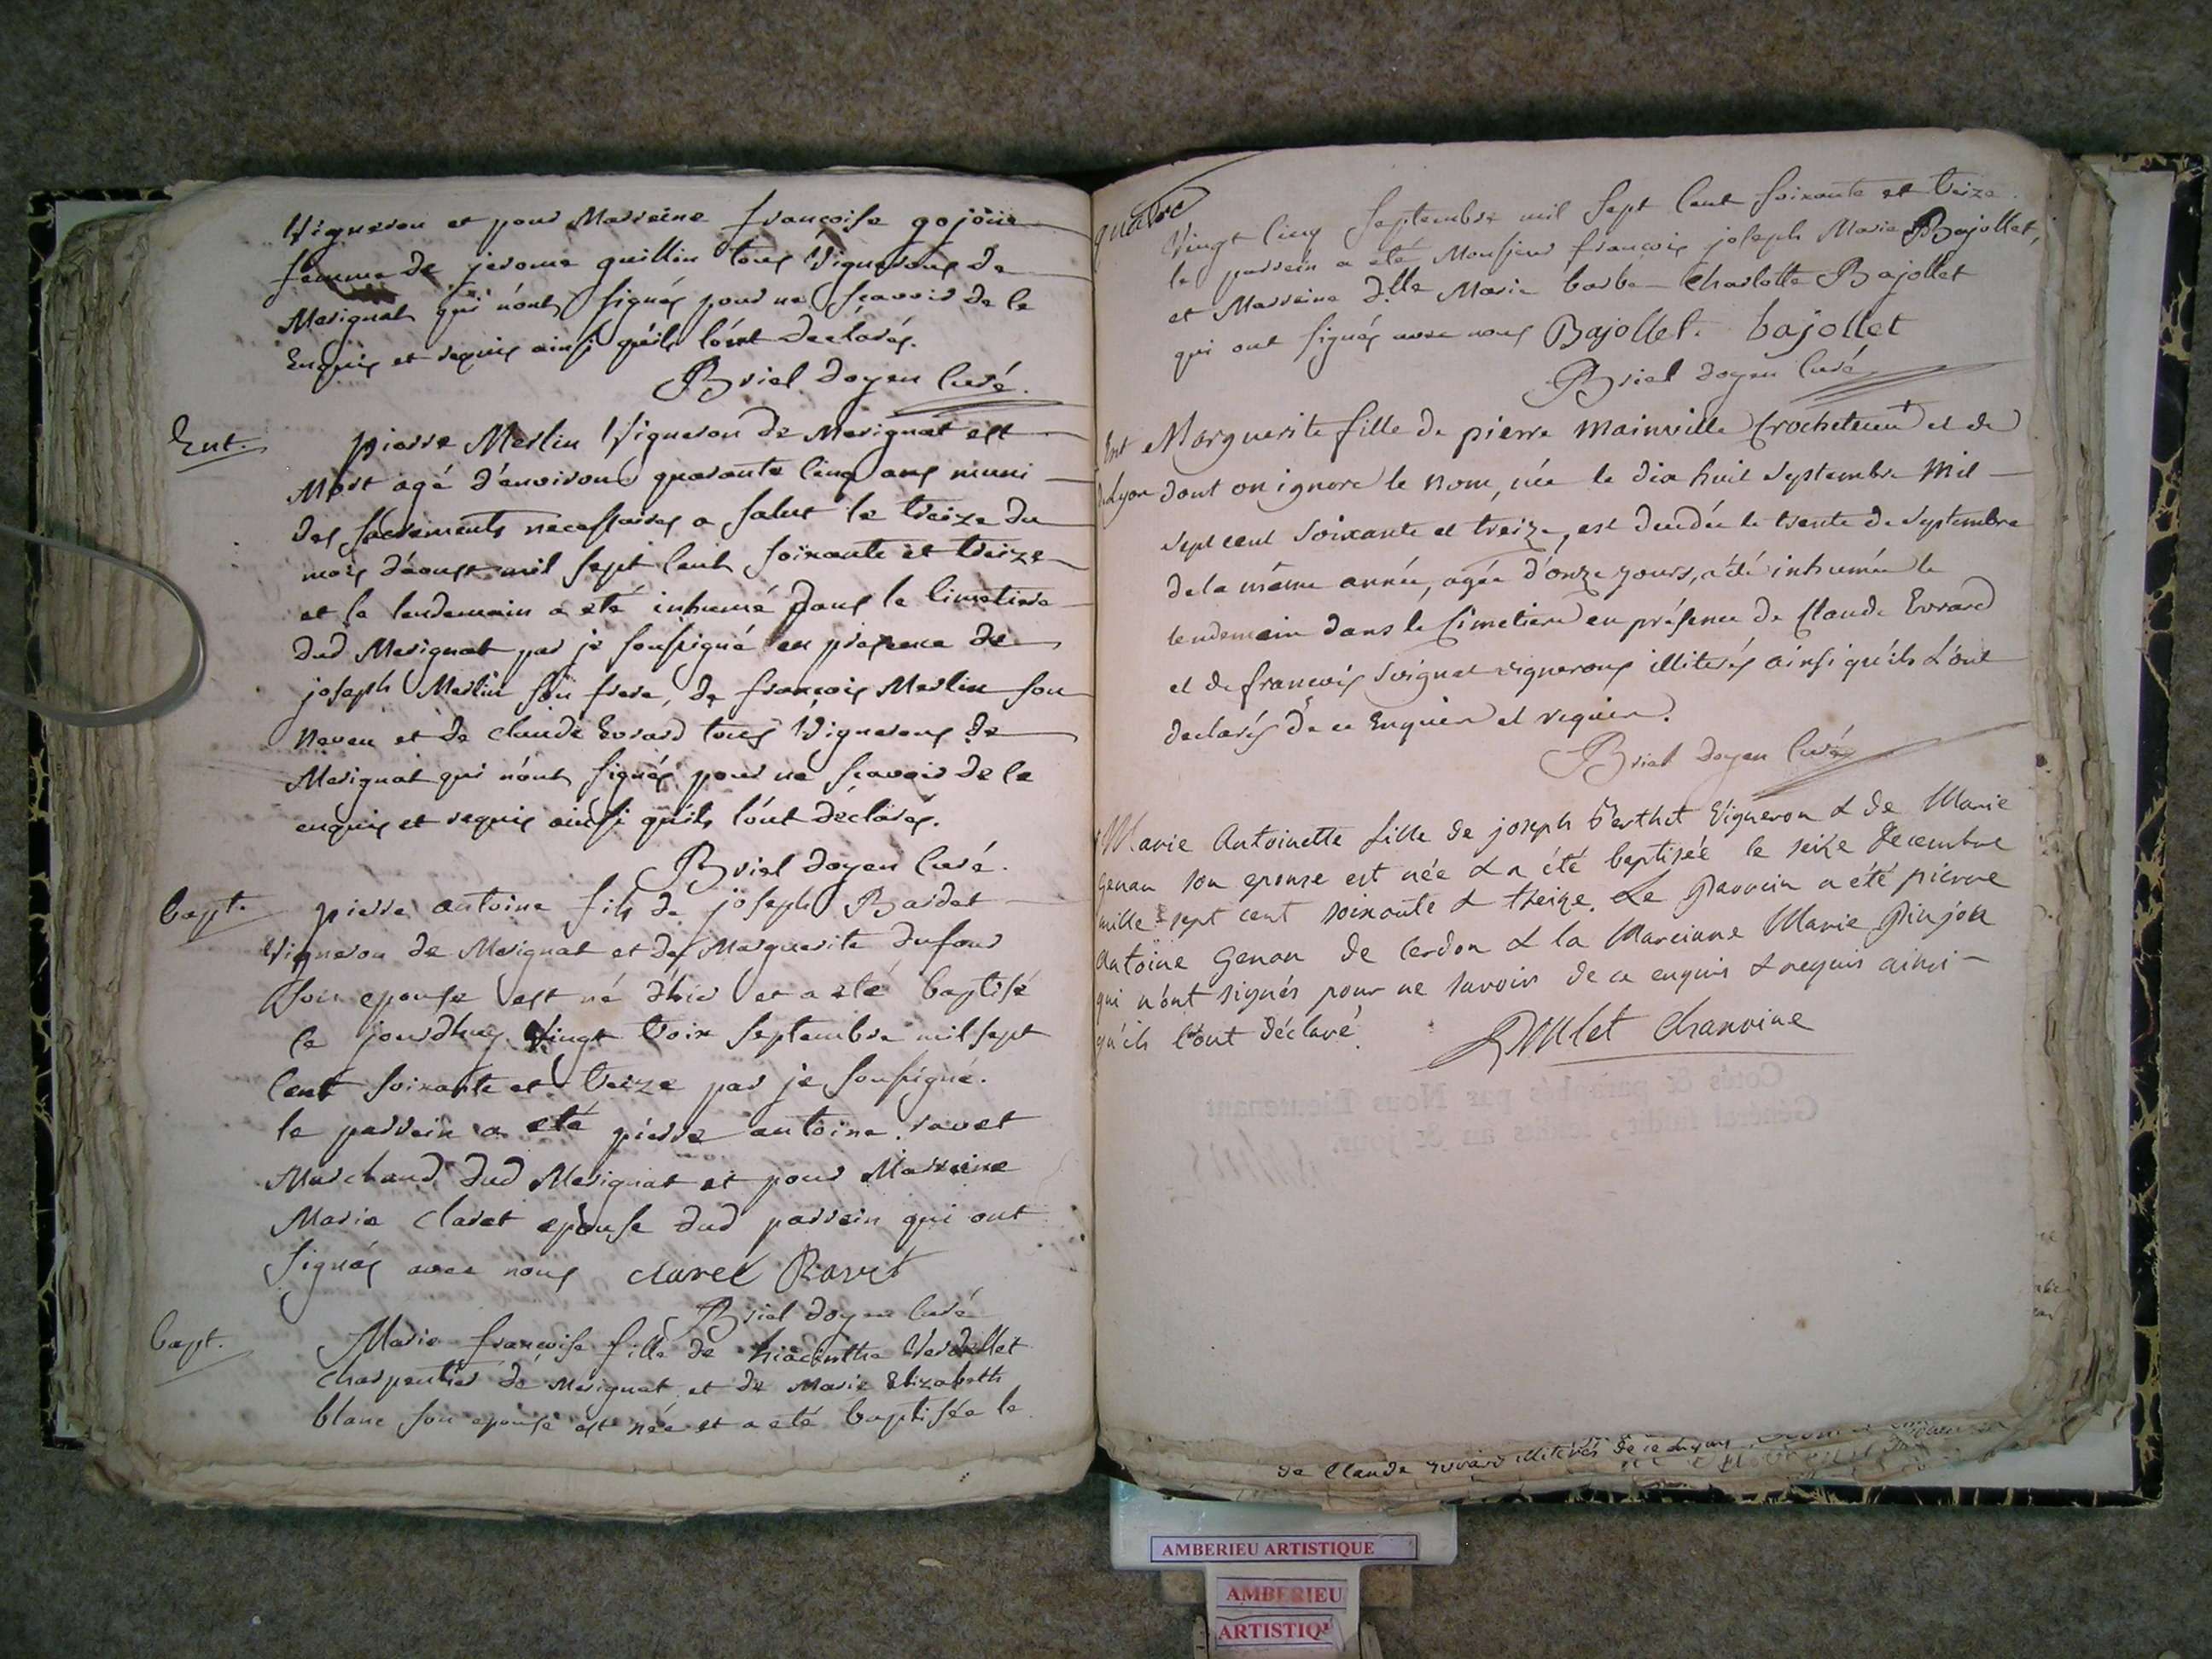 Vigneron et pour Marreine françoise gojoüe
femme de jerome guillin tous Vignerons de
Merignat qui n'ont signés pour ne sçavoir de ce
Enquis et requis ainsi qu'ils l'ont declarés.
Briel doyen Curé.
Ent.
pierre Merlin Vigneron de Merignat est
Mort agé d'environ quarante Cinq ans muni
des sacrements necessaires a salut le treize du
mois d'aoust mil sept Cent soixante et treize
et le lendemain a eté inhumé dans le Cimetiere
dud Merignat par je soussigné en presence de
joseph Merlin son frere, de françois Merlin son
Neveu et de claude Evrard tous Vignerons de
Merignat qui n'ont signés pour ne sçavoir de ce
enquis et requis ainsi qu'ils l'ont déclarés.
Briel doyen Curé.
bapt.
pierre antoine fils de joseph Bardet
Vigneron de Merignat et de Marguerite dufour
son epouse est né d'hier et a eté baptisé
ce jourdhuy Vingt trois septembre mil sept
Cent soixante et treize par je soussigné.
le parrein a eté pierre antoine ravet
Marchand dud Merignat et pour Marreine
Marie claret epouse dud parrein qui ont
signés avec nous claret Ravet
Briel doyen Curé
bapt.
Marie françoise fille de hiacinthe Verdellet
Charpentier de Merignat et de Marie Elizabeth
blanc son epouse est née et a eté baptisée le
quatre
Vingt Cinq septembre mil sept Cent soixante et treize
le parrein a eté Monsieur françois joseph Marie Bajollet,
et Marreine d.lle Marie barbe Charlotte Bajollet
qui ont signés avec nous Bajollet. bajollet
Briel doyen Curé
Ent Marguerite fille de pierre Mainville Crocheteur et de
de Lyon dont on ignore le nom, née le dix huit Septembre Mil
Sept cent Soixante et treize, est decedée le trente de Septembre
de la même année, agée d'onze jours, a été inhumée le
lendemain dans le Cimetiere en présence de Claude Evrard
et de francois Soignet vignerons illiterés ainsi qu'ils L'ont
declarés de ce Enquis et requis.
Briel doyen Curé
Marie Antoinette fille de joseph Berthet Vigneron & de Marie
Genan son epouse est née & a été baptisée le seize Decembre
mille sept cent soixante & treize. Le Parrein a été pierre
Antoine Genan de Cerdon & la Marreine Marie Pinjon
qui n'ont signés pour ne savoir de ce enquis & requis ainsi
qu'ils l'ont déclaré.
chanoine
Cotés & paraphés par Nous Lieutenant
Général
de Claude Evrard illiterés de ce enquis
AMBERIEU ARTISTIQUE
AMBERIEU
ARTISTIQU